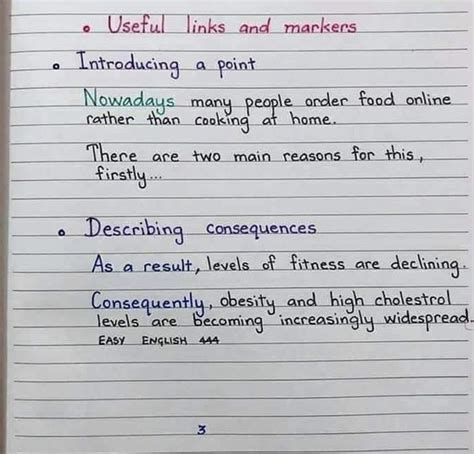 • Useful links and markers
• Introducing a point
Nowadays many people order food online
rather than cooking at home.
There are two main reasons for this,
firstly...
• Describing consequences
As a result, levels of fitness are declining.
Consequently, obesity and high cholestrol
levels are becoming increasingly widespread.
EASY ENGLISH 444
3